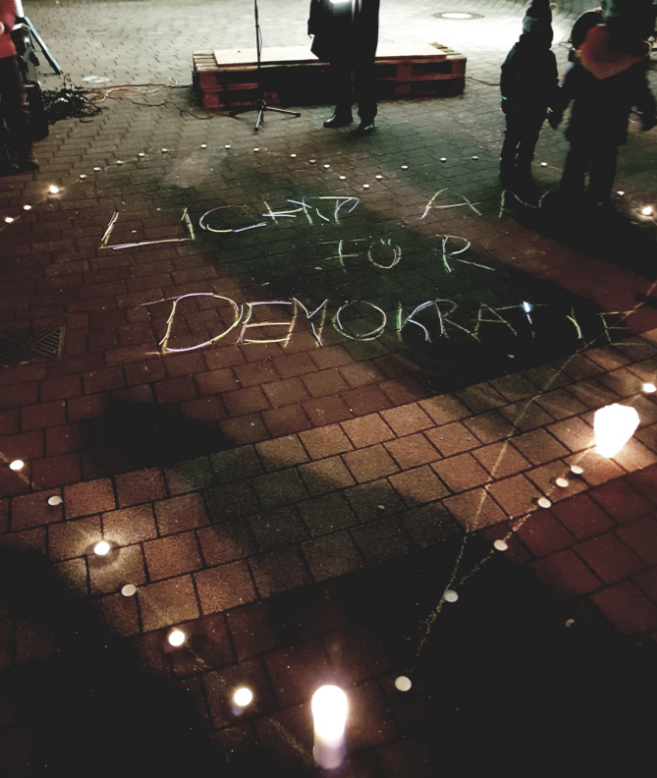 LICHT AN
FÜR
DEMOKRATIE